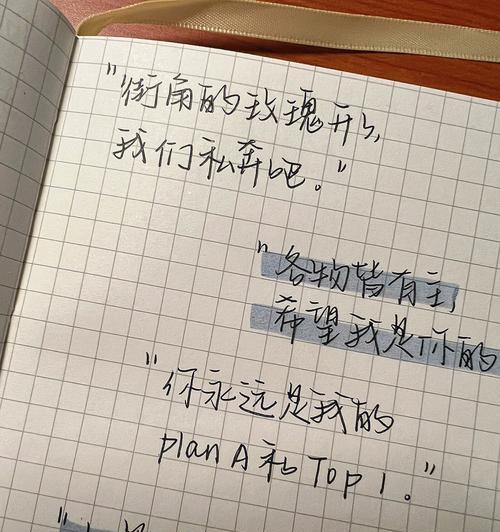 "街角的玫瑰开了,
我们私奔吧。"
"各物皆有主,
希望我是你的
"你永远是我的
plan A和Top 1."
"